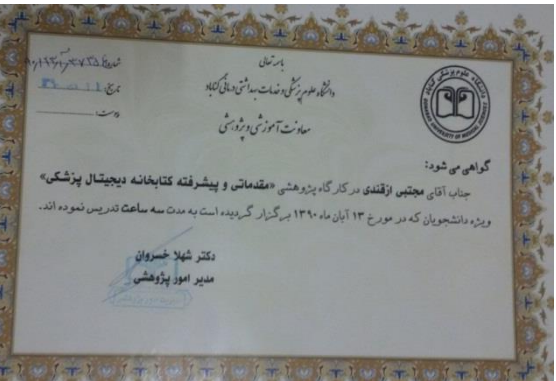 باسمه تعالی
دانشگاه علوم پزشکی و خدمات بهداشتی درمانی گناباد
معاونت آموزشی و پژوهشی
شماره:
تاریخ:
پیوست:
GONABAD UNIVERSITY OF MEDICAL SCIENCES
گواهی می شود:
جناب آقای مجتبی ازقندی در کارگاه پژوهشی «مقدماتی و پیشرفته کتابخانه دیجیتال پزشکی»
ویژه دانشجویان که در مورخ ۱۳ آبان ماه ۱۳۹۰ برگزار گردیده است به مدت سه ساعت تدریس نموده اند.
دکتر شهلا خسروان
مدیر امور پژوهشی